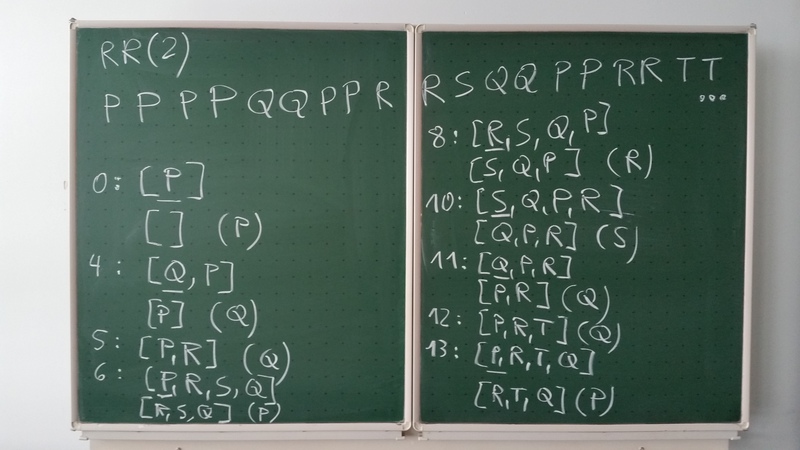 RR(2)
P P P P Q Q P P R R S Q Q P P R R T T ...
0: [P]
[ ] (P)
4: [Q, P]
[P] (Q)
5: [P, R] (Q)
6: [P, R, S, Q]
[R, S, Q] (P)
8: [R, S, Q, P]
[S, Q, P] (R)
10: [S, Q, P, R]
[Q, P, R] (S)
11: [Q, P, R]
[P, R] (Q)
12: [P, R, T] (Q)
13: [P, R, T, Q]
[R, T, Q] (P)